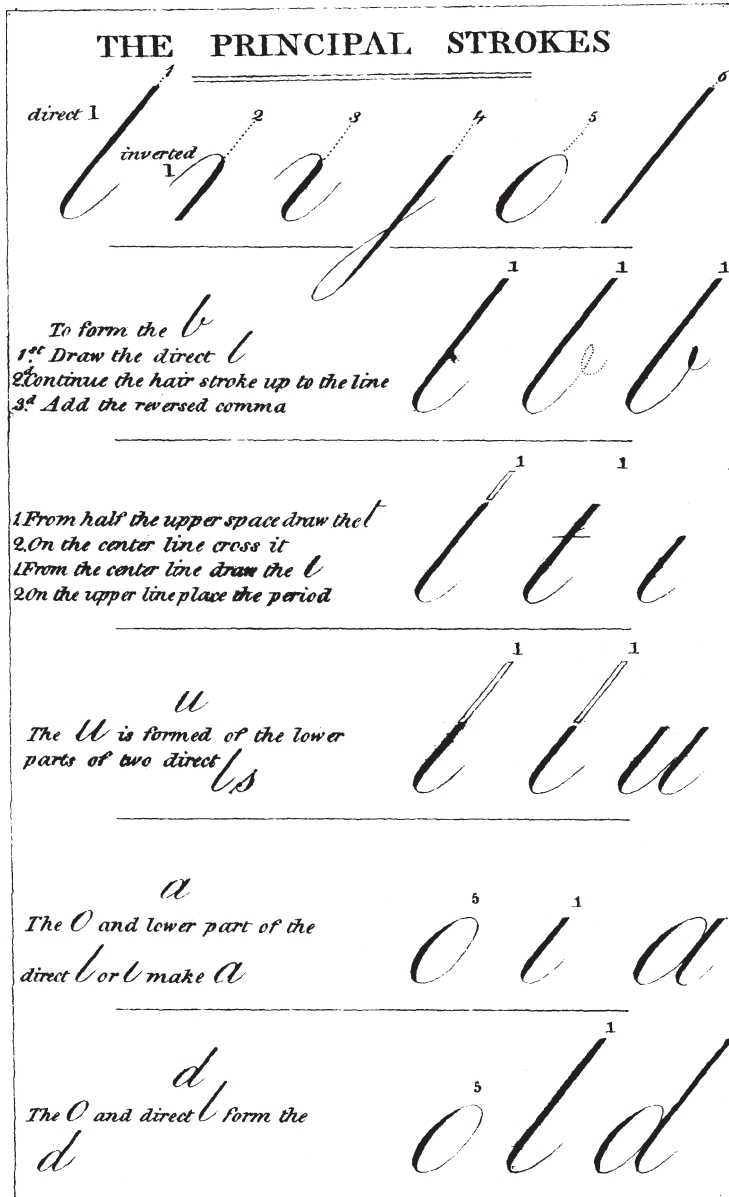 THE PRINCIPAL STROKES
direct 1 1 inverted 1 2 3 4 5 6
To form the b
1st Draw the direct l
2d Continue the hair stroke up to the line
3d Add the reversed comma
1 1 1
b
1 From half the upper space draw the t
2. On the center line cross it
1 From the center line draw the l
2 On the upper line place the period
1 1
l t ı
u
The u is formed of the lower
parts of two direct ls
1 1
l l u
a
The O and lower part of the
direct l or t make a
5 1
o ı a
d
The O and direct l form the
d
5 1
o l d